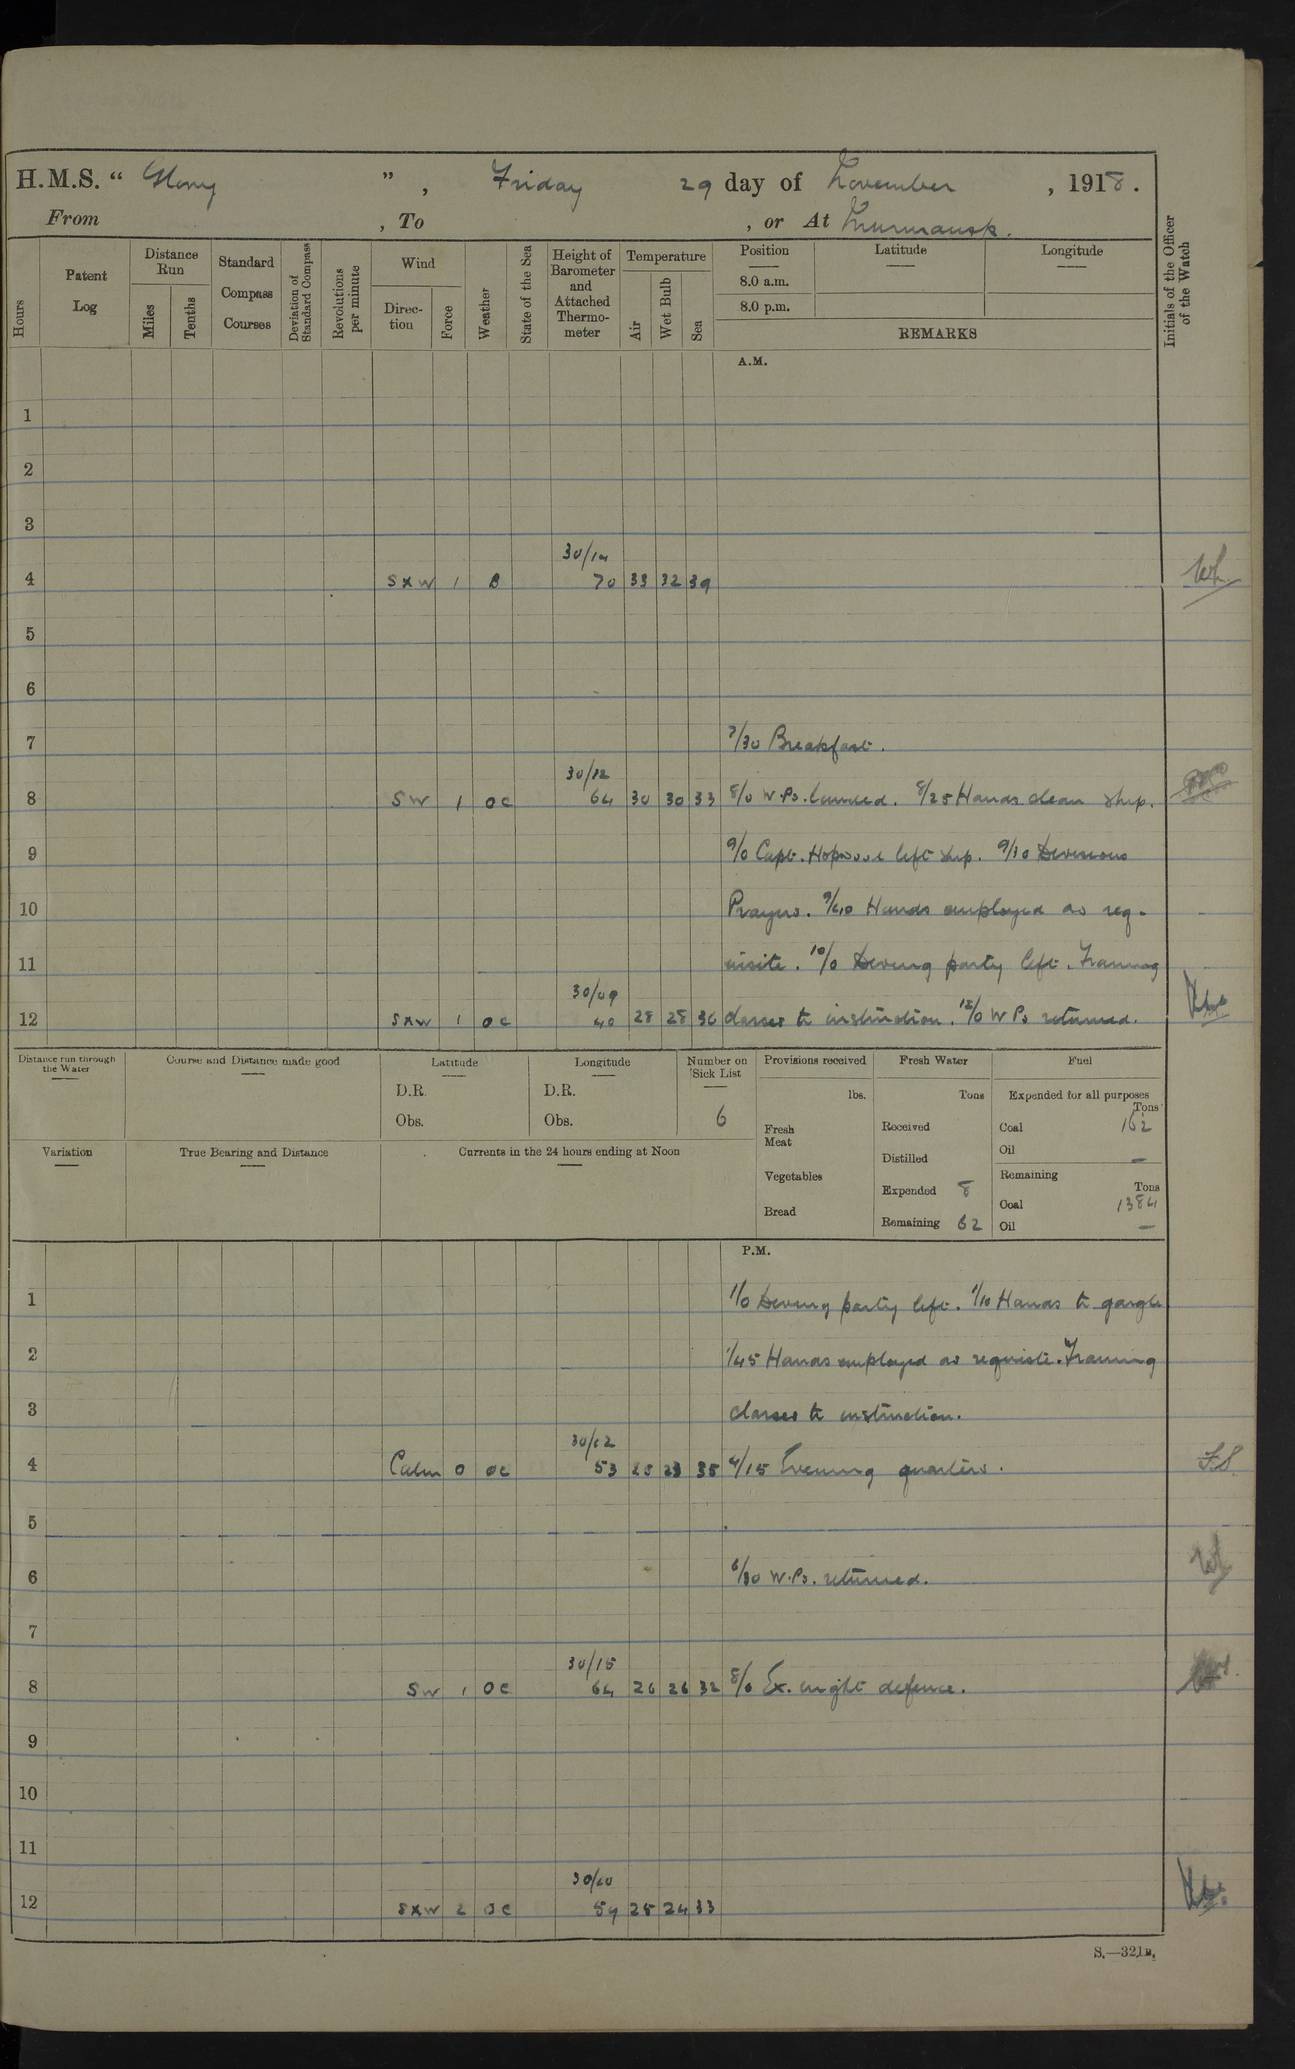 H.M.S. “ Glory ” , Friday 29 day of November , 1918 .
From , To , or At Murmansk.
Hours
Patent Log
Distance Run
Miles
Tenths
Standard Compass Courses
Deviation of Standard Compass
Revolutions per minute
Wind
Direc-tion
Force
Weather
State of the Sea
Height of Barometer and Attached Thermo-meter
Temperature
Air
Wet Bulb
Sea
Position
8.0 a.m.
8.0 p.m.
Latitude
Longitude
REMARKS
Initials of the Officer of the Watch
A.M.
1
2
3
30/14
4 SxW 1 B 70 33 32 39
5
6
7 7/30 Breakfast.
30/12
8 SW 1 OC 64 30 30 33 8/0 W.Ps. landed. 8/25 Hands clean ship.
9 9/0 Capt. Hopwood left ship. 9/30 Divisions
10 Prayers. 9/40 Hands employed as req-
11 uisite. 10/0 Diving party left. Training
30/09
12 SxW 1 OC 40 28 28 36 classes to instruction. 12/0 W Ps returned.
Distance run through the Water
Course and Distance made good
Latitude
D.R.
Obs.
Longitude
D.R.
Obs.
Number on Sick List
6
Provisions received
lbs.
Fresh Meat
Vegetables
Bread
Fresh Water
Tons
Received
Distilled
Expended 8
Remaining 62
Fuel
Expended for all purposes
Tons
Coal 162
Oil —
Remaining
Tons
Coal 1384
Oil —
Variation
True Bearing and Distance
Currents in the 24 hours ending at Noon
P.M.
1 1/0 Diving party left. 1/10 Hands to gargle
2 1/45 Hands employed as requisite. Training
3 classes to instruction.
30/12
4 Calm 0 OC 53 25 23 35 4/15 Evening quarters. F.S.
5
6 6/30 W.Ps. returned.
7
30/15
8 SW 1 OC 64 26 26 32 8/0 Ex. night defence.
9
10
11
30/20
12 SxW 2 OC 54 25 24 33
S.—321B.